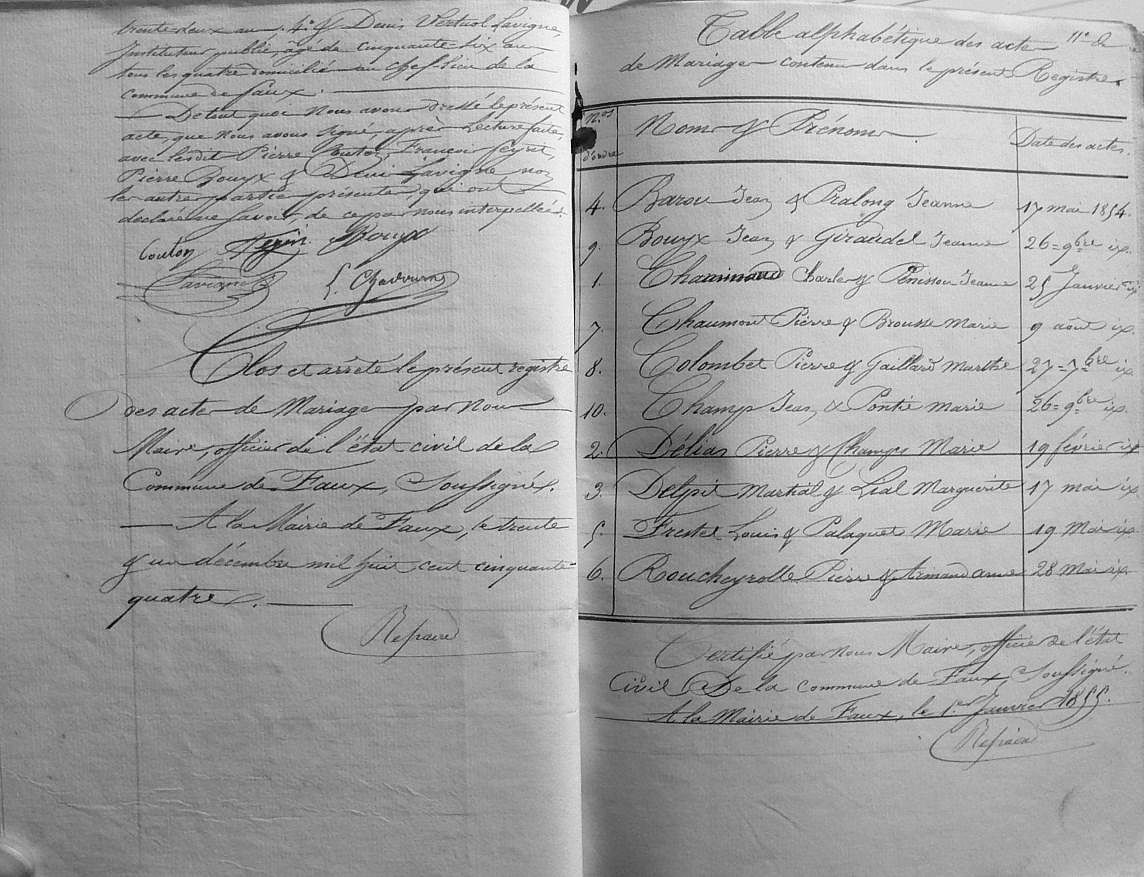 trente deux ans, 4° & Denis Vertuol Lavigne
Instituteur public, agé de cinquante-six ans,
tous les quatre domiciliés au chef-lieu de la
commune de faux.
— De tout quoi nous avons dressé le présent
acte, que nous avons signé, après lecture faite,
avec lesdit Pierre Couton, François feyret,
Pierre Bouyx & Denis Lavigne, non
les autres parties présentes qui ont
déclaré ne savoir, de ce par nous interpellés.
Couton Bouyx
Lavigne
Clos et arrêté le présent registre
Des actes de Mariage par nous
Maire, officier de l'état civil de la
Commune de Faux, Soussigné.
— A la Mairie de Faux, le trente
& un décembre mil huit cent cinquante
quatre. —
Repaire
Table alphabétique des actes 11e &
de Mariage contenus dans le présent Registre.
N.os d'ordre Noms & Prénoms Date des actes.
4. Barou Jean & Pralong Jeanne 17 mai 1854.
9. Bouyx Jean & Giraudel Jeanne 26 = 9bre ix.
1. Chaminaud Charles & Penisson Jeanne 25 Janvier ix
7. Chaumont Pierre & Brousse Marie 9 août ix.
8. Colombet Pierre & Gaillard Marthe 27 = 7bre ix
10. Champs Jean & Pontie marie 26 = 9bre ix.
2. Délias Pierre & Champs Marie 19 février ix
3. Delpit Martial & Lial Marguerite 17 mai ix
5. Frestel Louis & Palaquet Marie 19 Mai ix
6. Roucheyrolle Pierre & Armand anne 28 Mai ix.
Certifié par nous Maire, officier de l'état
Civil De la commune de Faux, Soussigné.
A la Mairie de Faux, le 1er Janvier 1855.
Repaire